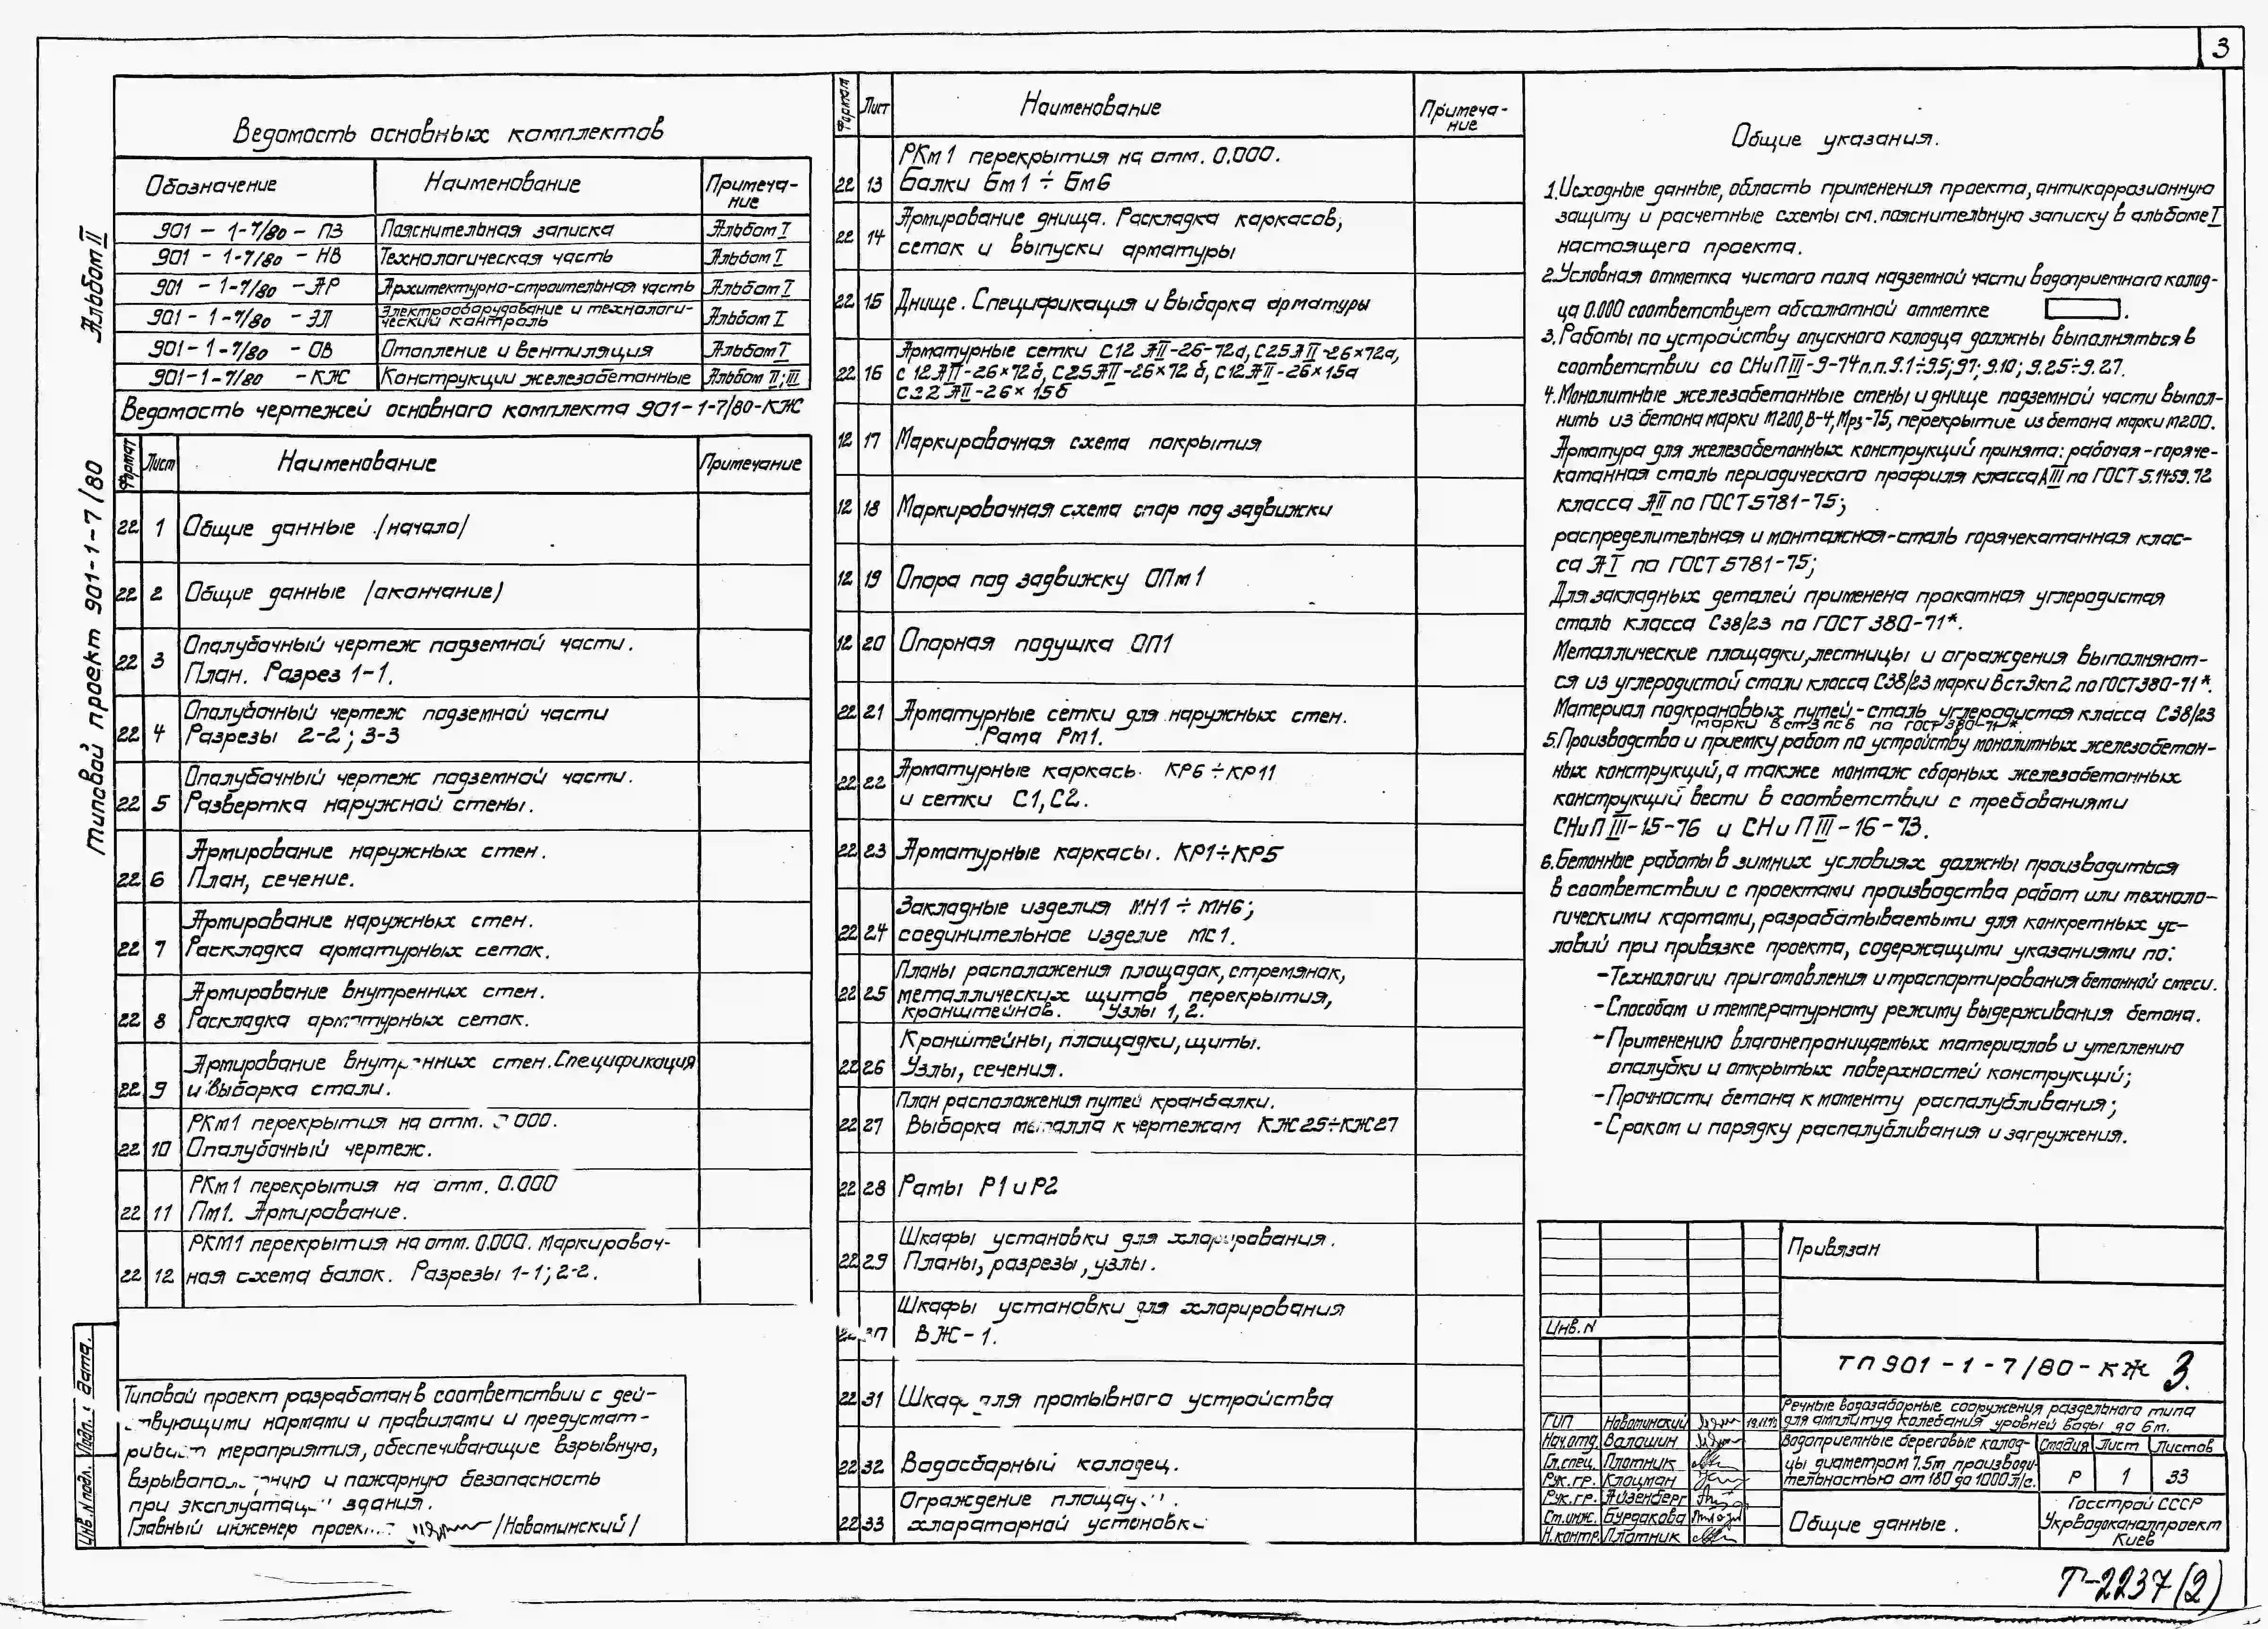 3
Альбом II
Типовой проект 901-1-7/80
Ведомость основных комплектов
Обозначение Наименование Примеча-
ние
901 - 1-7/80 - ПЗ Пояснительная записка Альбом I
901 - 1-7/80 - НВ Технологическая часть Альбом I
901 - 1-7/80 - АР Архитектурно-строительная часть Альбом I
901 - 1-7/80 - ЭЛ Электрооборудование и технологи-
ческий контроль Альбом I
901-1-7/80 - ОВ Отопление и вентиляция Альбом I
901-1-7/80 - КЖ Конструкции железобетонные Альбом II; III
Ведомость чертежей основного комплекта 901-1-7/80-КЖ
Формат Лист Наименование Примечание
22 1 Общие данные /начало/
22 2 Общие данные /окончание/
22 3 Опалубочный чертеж подземной части.
План. Разрез 1-1.
22 4 Опалубочный чертеж подземной части
Разрезы 2-2; 3-3
22 5 Опалубочный чертеж подземной части.
Развертка наружной стены.
22 6 Армирование наружных стен.
План, сечение.
22 7 Армирование наружных стен.
Раскладка арматурных сеток.
22 8 Армирование внутренних стен.
Раскладка арматурных сеток.
22 9 Армирование внутренних стен. Спецификация
и выборка стали.
22 10 РКм1 перекрытия на отм. 0.000.
Опалубочный чертеж.
22 11 РКм1 перекрытия на отм. 0.000
Пм1. Армирование.
22 12 РКМ1 перекрытия на отм. 0.000. Маркировоч-
ная схема балок. Разрезы 1-1; 2-2.
Типовой проект разработан в соответствии с дей-
ствующими нормами и правилами и предусмат-
ривает мероприятия, обеспечивающие взрывную,
взрывопожарную и пожарную безопасность
при эксплуатации здания.
Главный инженер проекта /Новоминский/
Инв. N подл. Подп. и дата.
Формат Лист Наименование Примеча-
ние
22 13 РКм1 перекрытия на отм. 0.000.
Балки Бм1 ÷ Бм6
22 14 Армирование днища. Раскладка каркасов,
сеток и выпуски арматуры
22 15 Днище. Спецификация и выборка арматуры
22 16 Арматурные сетки С12 АII-26-72а, С25АII-26×72а,
С12АII-26×72б, С25АII-26×72б, С12АII-26×15а
С22 АII-26×15б
12 17 Маркировочная схема покрытия
12 18 Маркировочная схема опор под задвижки
12 19 Опора под задвижку ОПм1
12 20 Опорная подушка ОП1
22 21 Арматурные сетки для наружных стен.
Рама Рм1.
22 22 Арматурные каркасы КР6 ÷ КР11
и сетки С1, С2.
22 23 Арматурные каркасы. КР1÷КР5
22 24 Закладные изделия МН1 ÷ МН6;
соединительное изделие МС1.
22 25 Планы расположения площадок, стремянок,
металлических щитов перекрытия,
кронштейнов. Узлы 1, 2.
22 26 Кронштейны, площадки, щиты.
Узлы, сечения.
22 27 План расположения путей кранбалки.
Выборка металла к чертежам КЖ25÷КЖ27
22 28 Рамы Р1 и Р2
22 29 Шкафы установки для хлорирования.
Планы, разрезы, узлы.
22 30 Шкафы установки для хлорирования
ВЖ-1.
22 31 Шкаф для промывного устройства
22 32 Водосборный колодец.
22 33 Ограждение площадки.
хлораторной установки
Общие указания.
1. Исходные данные, область применения проекта, антикоррозионную
защиту и расчетные схемы см. пояснительную записку в альбоме I
настоящего проекта.
2. Условная отметка чистого пола надземной части водоприемного колод-
ца 0.000 соответствует абсолютной отметке .
3. Работы по устройству опускного колодца должны выполняться в
соответствии со СНиП III-9-74 п.п. 9.1÷9.5; 9.7; 9.10; 9.25÷9.27.
4. Монолитные железобетонные стены и днище подземной части выпол-
нить из бетона марки М200, В-4, Мрз-75, перекрытие из бетона марки М200.
Арматура для железобетонных конструкций принята: рабочая-горяче-
катанная сталь периодического профиля класса АIII по ГОСТ 5.1459.72
класса АII по ГОСТ 5781-75;
распределительная и монтажная-сталь горячекатанная клас-
са АI по ГОСТ 5781-75;
Для закладных деталей применена прокатная углеродистая
сталь класса С38/23 по ГОСТ 380-71*.
Металлические площадки, лестницы и ограждения выполняют-
ся из углеродистой стали класса С38/23 марки ВСт3кп2 по ГОСТ 380-71*.
Материал подкрановых путей-сталь углеродистая класса С38/23
марки ВСт3пс6 по ГОСТ 380-71*
5. Производство и приемку работ по устройству монолитных железобетон-
ных конструкций, а также монтаж сборных железобетонных
конструкций вести в соответствии с требованиями
СНиП III-15-76 и СНиП III-16-73.
6. Бетонные работы в зимних условиях должны производиться
в соответствии с проектами производства работ или техноло-
гическими картами, разрабатываемыми для конкретных ус-
ловий при привязке проекта, содержащими указаниями по:
-Технологии приготовления и траспортирования бетонной смеси.
-Способам и температурному режиму выдерживания бетона.
-Применению влагонепроницаемых материалов и утеплению
опалубки и открытых поверхностей конструкций;
-Прочности бетона к моменту распалубливания;
-Срокам и порядку распалубливания и загружения.
Привязан
Инв. N
ТП 901-1-7/80-КЖ 3.
Речные водозаборные сооружения раздельного типа
для амплитуд колебания уровней воды до 6 м.
ГИП Новоминский
Нач. отд. Волошин
Гл. спец. Плотник
Рук. гр. Клоцман
Рук. гр. Айзенберг
Ст. инж. Бурдакова
Н. контр. Плотник
Водоприемные береговые колод-
цы диаметром 7.5 м производи-
тельностью от 180 до 1000 л/с.
Стадия Лист Листов
Р 1 33
Общие данные.
Госстрой СССР
Укрводоканалпроект
Киев
Т-2237 (2)